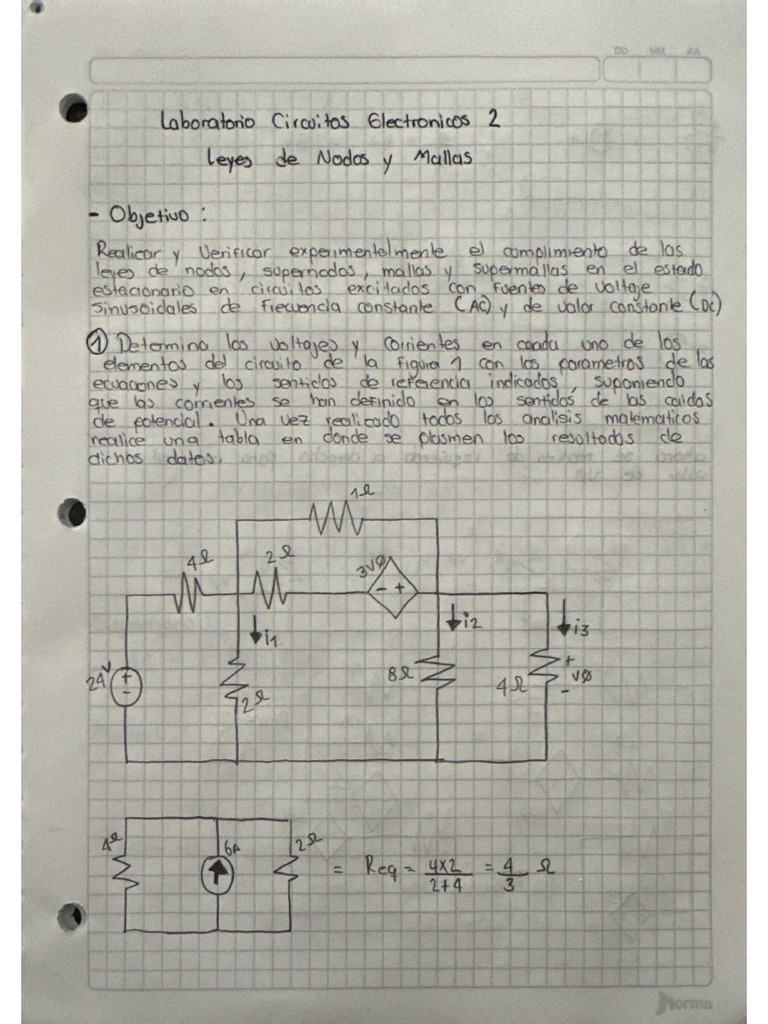 DD MM AA
Laboratorio Circuitos Electronicos 2
Leyes de Nodos y Mallas
- Objetivo :
Realicar y Verificar experimentalmente el complimiento de las
leyes de nodos, supernodos, mallas y supermallas en el estado
estacionario en circuitos excitados con fuentes de voltaje
sinusoidales de frecuencia constante (AC) y de valor constante (DC)
① Determina los voltajes y corrientes en canda uno de los
elementos del circuito de la figura 1 con los parametros de las
ecuaciones y los sentidos de referencia indicados, suponiendo
que las corrientes se han definido en los sentidos de las caidas
de potencial. Una vez realicado todos los analisis matematicos
realice una tabla en donde se plasmen los resoltados de
dichos datos.
1Ω
4Ω 2Ω 3VØ
- +
i1 i2 i3
24V + - 2Ω 8Ω 4Ω + VØ -
4Ω 6A 2Ω = Req = 4x2 / 2+4 = 4 / 3 Ω
Norma